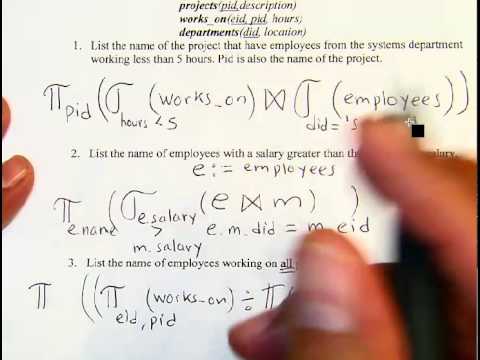 projects(pid,description)
works_on(eid, pid, hours)
departments(did, location)
1. List the name of the project that have employees from the systems department
working less than 5 hours. Pid is also the name of the project.
π pid (σ hours < 5 (works_on) ⋈ σ did = 's (employees))
2. List the name of employees with a salary greater than salary.
e := employees
π ename (σ e.salary > m.salary (e ⋈ m) )
e.m.did = m.eid
3. List the name of employees working on all
π ((π eid, pid (works_on) ÷ π (